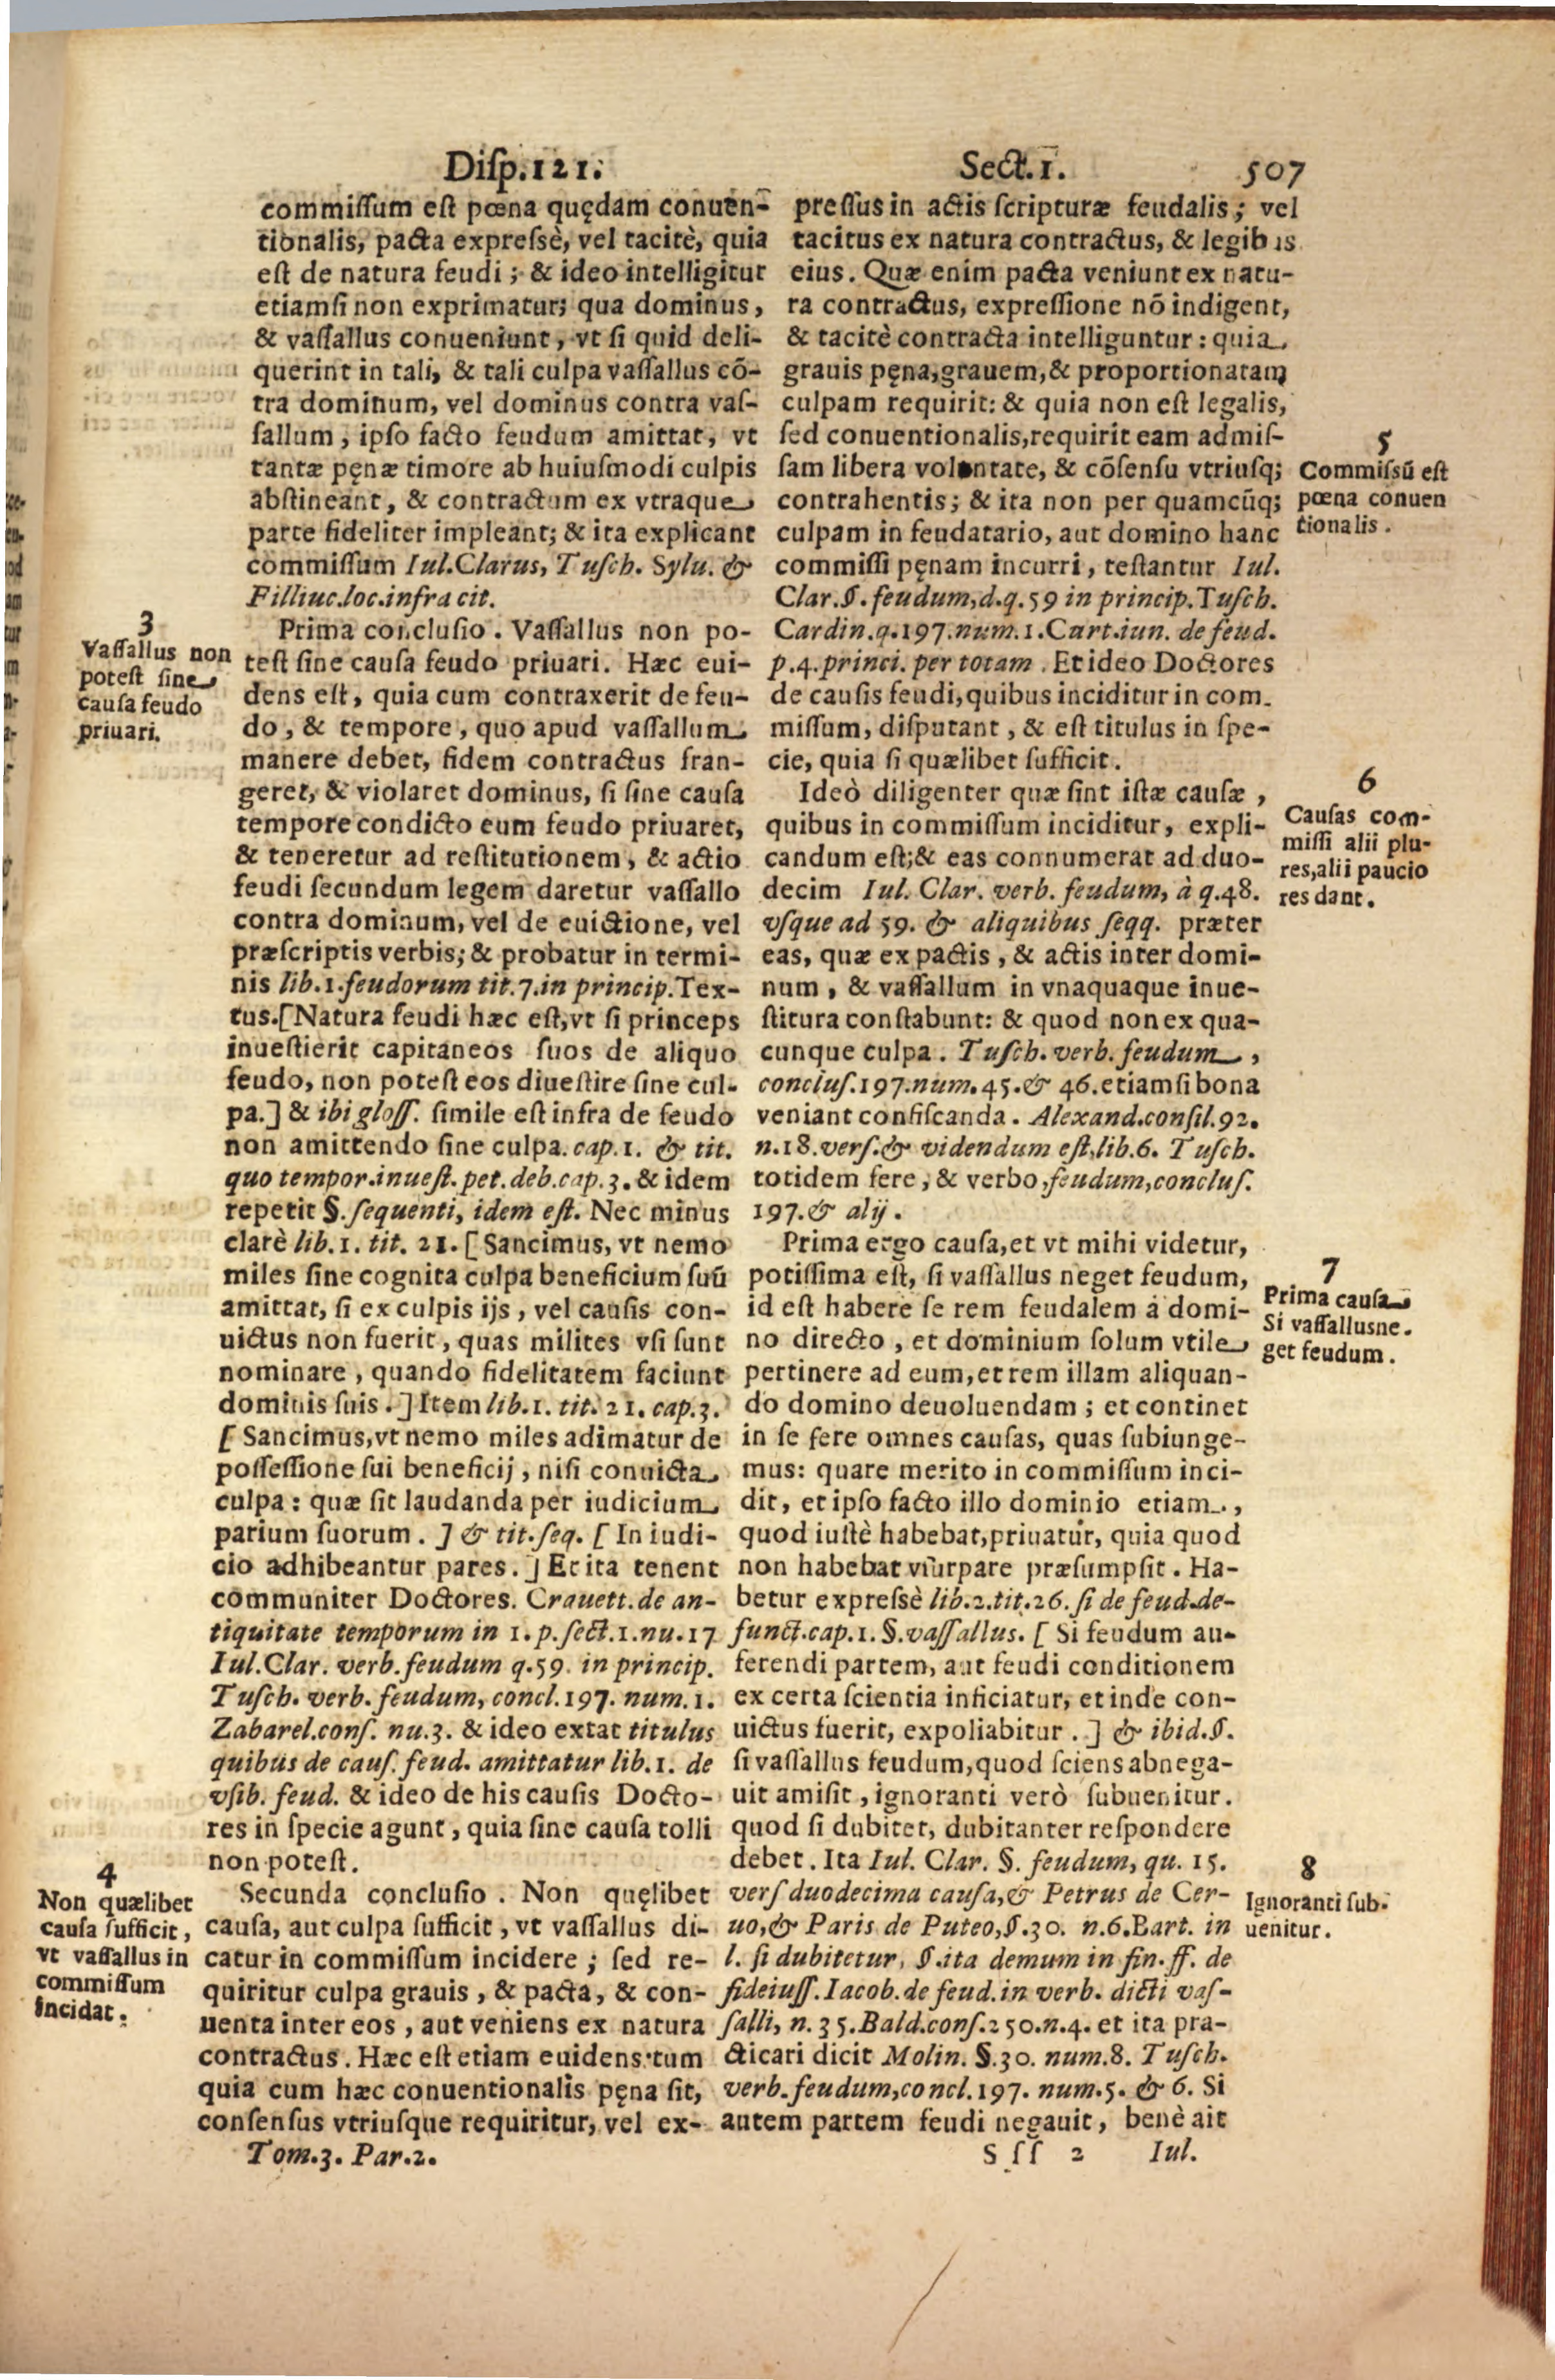 Disp.121. Sect.1. 507
commiſſum eſt pœna quędam conuen-
tionalis, pacta expreſsè, vel tacitè, quia
eſt de natura feudi; & ideo intelligitur
etiamſi non exprimatur; qua dominus,
& vaſſallus conueniunt, vt ſi quid deli-
querint in tali, & tali culpa vaſſallus cō-
tra dominum, vel dominus contra vaſ-
ſallum, ipſo facto feudum amittat, vt
tantæ pęnæ timore ab huiuſmodi culpis
abſtineant, & contractum ex vtraque
parte fideliter impleant; & ita explicant
commiſſum Iul.Clarus, Tuſch. Sylu. &
Filliuc.loc.infra cit.
3
Vaſſallus non
poteſt ſine
cauſa feudo
priuari.
Prima concluſio. Vaſſallus non po-
teſt ſine cauſa feudo priuari. Hæc eui-
dens eſt, quia cum contraxerit de feu-
do, & tempore, quo apud vaſſallum
manere debet, fidem contractus fran-
geret, & violaret dominus, ſi ſine cauſa
tempore condicto eum feudo priuaret,
& teneretur ad reſtitutionem, & actio
feudi ſecundum legem daretur vaſſallo
contra dominum, vel de euictione, vel
præſcriptis verbis; & probatur in termi-
nis lib.1.feudorum tit.7.in princip.Tex-
tus.[Natura feudi hæc eſt,vt ſi princeps
inueſtierit capitaneos ſuos de aliquo
feudo, non poteſt eos diueſtire ſine cul-
pa.] & ibi gloſſ. ſimile eſt infra de feudo
non amittendo ſine culpa. cap.1. & tit.
quo tempor.inueſt.pet.deb.cap.3. & idem
repetit §.ſequenti, idem eſt. Nec minus
clarè lib.1. tit. 21. [Sancimus, vt nemo
miles ſine cognita culpa beneficium ſuū
amittat, ſi ex culpis ijs, vel cauſis con-
uictus non fuerit, quas milites vſi ſunt
nominare, quando fidelitatem faciunt
dominis ſuis.] Item lib.1. tit. 21. cap.3.
[Sancimus,vt nemo miles adimatur de
poſſeſſione ſui beneficij, niſi conuicta
culpa: quæ ſit laudanda per iudicium
parium ſuorum.] & tit.ſeq. [In iudi-
cio adhibeantur pares.] Et ita tenent
communiter Doctores. Crauett.de an-
tiquitate temporum in 1.p.ſect.1.nu.17
Iul.Clar. verb.feudum q.59. in princip.
Tuſch. verb.feudum, concl.197. num.1.
Zabarel.conſ. nu.3. & ideo extat titulus
quibus de cauſ.feud. amittatur lib.1. de
vſib. feud. & ideo de his cauſis Docto-
res in ſpecie agunt, quia ſine cauſa tolli
non poteſt.
4
Non quælibet
cauſa ſufficit,
vt vaſſallus in
commiſſum
incidat.
Secunda concluſio. Non quęlibet
cauſa, aut culpa ſufficit, vt vaſſallus di-
catur in commiſſum incidere; ſed re-
quiritur culpa grauis, & pacta, & con-
uenta inter eos, aut veniens ex natura
contractus. Hæc eſt etiam euidens: tum
quia cum hæc conuentionalis pęna ſit,
conſenſus vtriuſque requiritur, vel ex-
preſſus in actis ſcripturæ feudalis; vel
tacitus ex natura contractus, & legibus
eius. Quæ enim pacta veniunt ex natu-
ra contractus, expreſſione nō indigent,
& tacitè contracta intelliguntur: quia
grauis pęna,grauem,& proportionatam
culpam requirit: & quia non eſt legalis,
ſed conuentionalis,requirit eam admiſ-
ſam libera voluntate, & cōſenſu vtriuſq;
contrahentis; & ita non per quamcūq;
culpam in feudatario, aut domino hanc
commiſſi pęnam incurri, teſtantur Iul.
Clar.§.feudum,d.q.59 in princip.Tuſch.
Cardin.q.197.num.1.Curt.iun. de feud.
p.4.princi. per totam. Et ideo Doctores
de cauſis feudi,quibus inciditur in com-
miſſum, diſputant, & eſt titulus in ſpe-
cie, quia ſi quælibet ſufficit.
5
Commiſsū eſt
pœna conuen
tionalis.
6
Cauſas com-
miſſi alii plu-
res,alii paucio
res dant.
Ideò diligenter quæ ſint iſtæ cauſæ,
quibus in commiſſum inciditur, expli-
candum eſt;& eas connumerat ad duo-
decim Iul. Clar. verb. feudum, à q.48.
vſque ad 59. & aliquibus ſeqq. præter
eas, quæ ex pactis, & actis inter domi-
num, & vaſſallum in vnaquaque inue-
ſtitura conſtabunt: & quod non ex qua-
cunque culpa. Tuſch. verb. feudum,
concluſ.197.num.45.& 46.etiamſi bona
veniant confiſcanda. Alexand.conſil.92.
n.18.verſ.& videndum eſt,lib.6. Tuſch.
totidem fere, & verbo,feudum,concluſ.
197.& alij.
7
Prima cauſa
Si vaſſallus ne-
get feudum.
Prima ergo cauſa,et vt mihi videtur,
potiſſima eſt, ſi vaſſallus neget feudum,
id eſt habere ſe rem feudalem à domi-
no directo, et dominium ſolum vtile
pertinere ad eum,et rem illam aliquan-
do domino deuoluendam; et continet
in ſe fere omnes cauſas, quas ſubiunge-
mus: quare merito in commiſſum inci-
dit, et ipſo facto illo dominio etiam,
quod iuſtè habebat,priuatur, quia quod
non habebat vſurpare præſumpſit. Ha-
betur expreſsè lib.2.tit.26.ſi de feud.de-
funct.cap.1.§.vaſſallus. [Si feudum au-
ferendi partem, aut feudi conditionem
ex certa ſcientia inficiatur, et inde con-
uictus fuerit, expoliabitur.] & ibid.§.
ſi vaſſallus feudum,quod ſciens abnega-
uit amiſit, ignoranti verò ſubuenitur.
quod ſi dubitet, dubitanter reſpondere
debet. Ita Iul. Clar. §. feudum, qu. 15.
verſ duodecima cauſa,& Petrus de Cer-
uo,& Paris de Puteo,§.30. n.6.Bart. in
l. ſi dubitetur, §.ita demum in fin.ff. de
fideiuſſ.Iacob.de feud.in verb. dicti vaſ-
ſalli, n.35.Bald.conſ.250.n.4. et ita pra-
cticari dicit Molin. §.30. num.8. Tuſch.
verb.feudum,concl.197. num.5. & 6. Si
autem partem feudi negauit, benè ait
8
Ignoranti ſub-
uenitur.
Tom.3. Par.2. Sſſ 2 Iul.